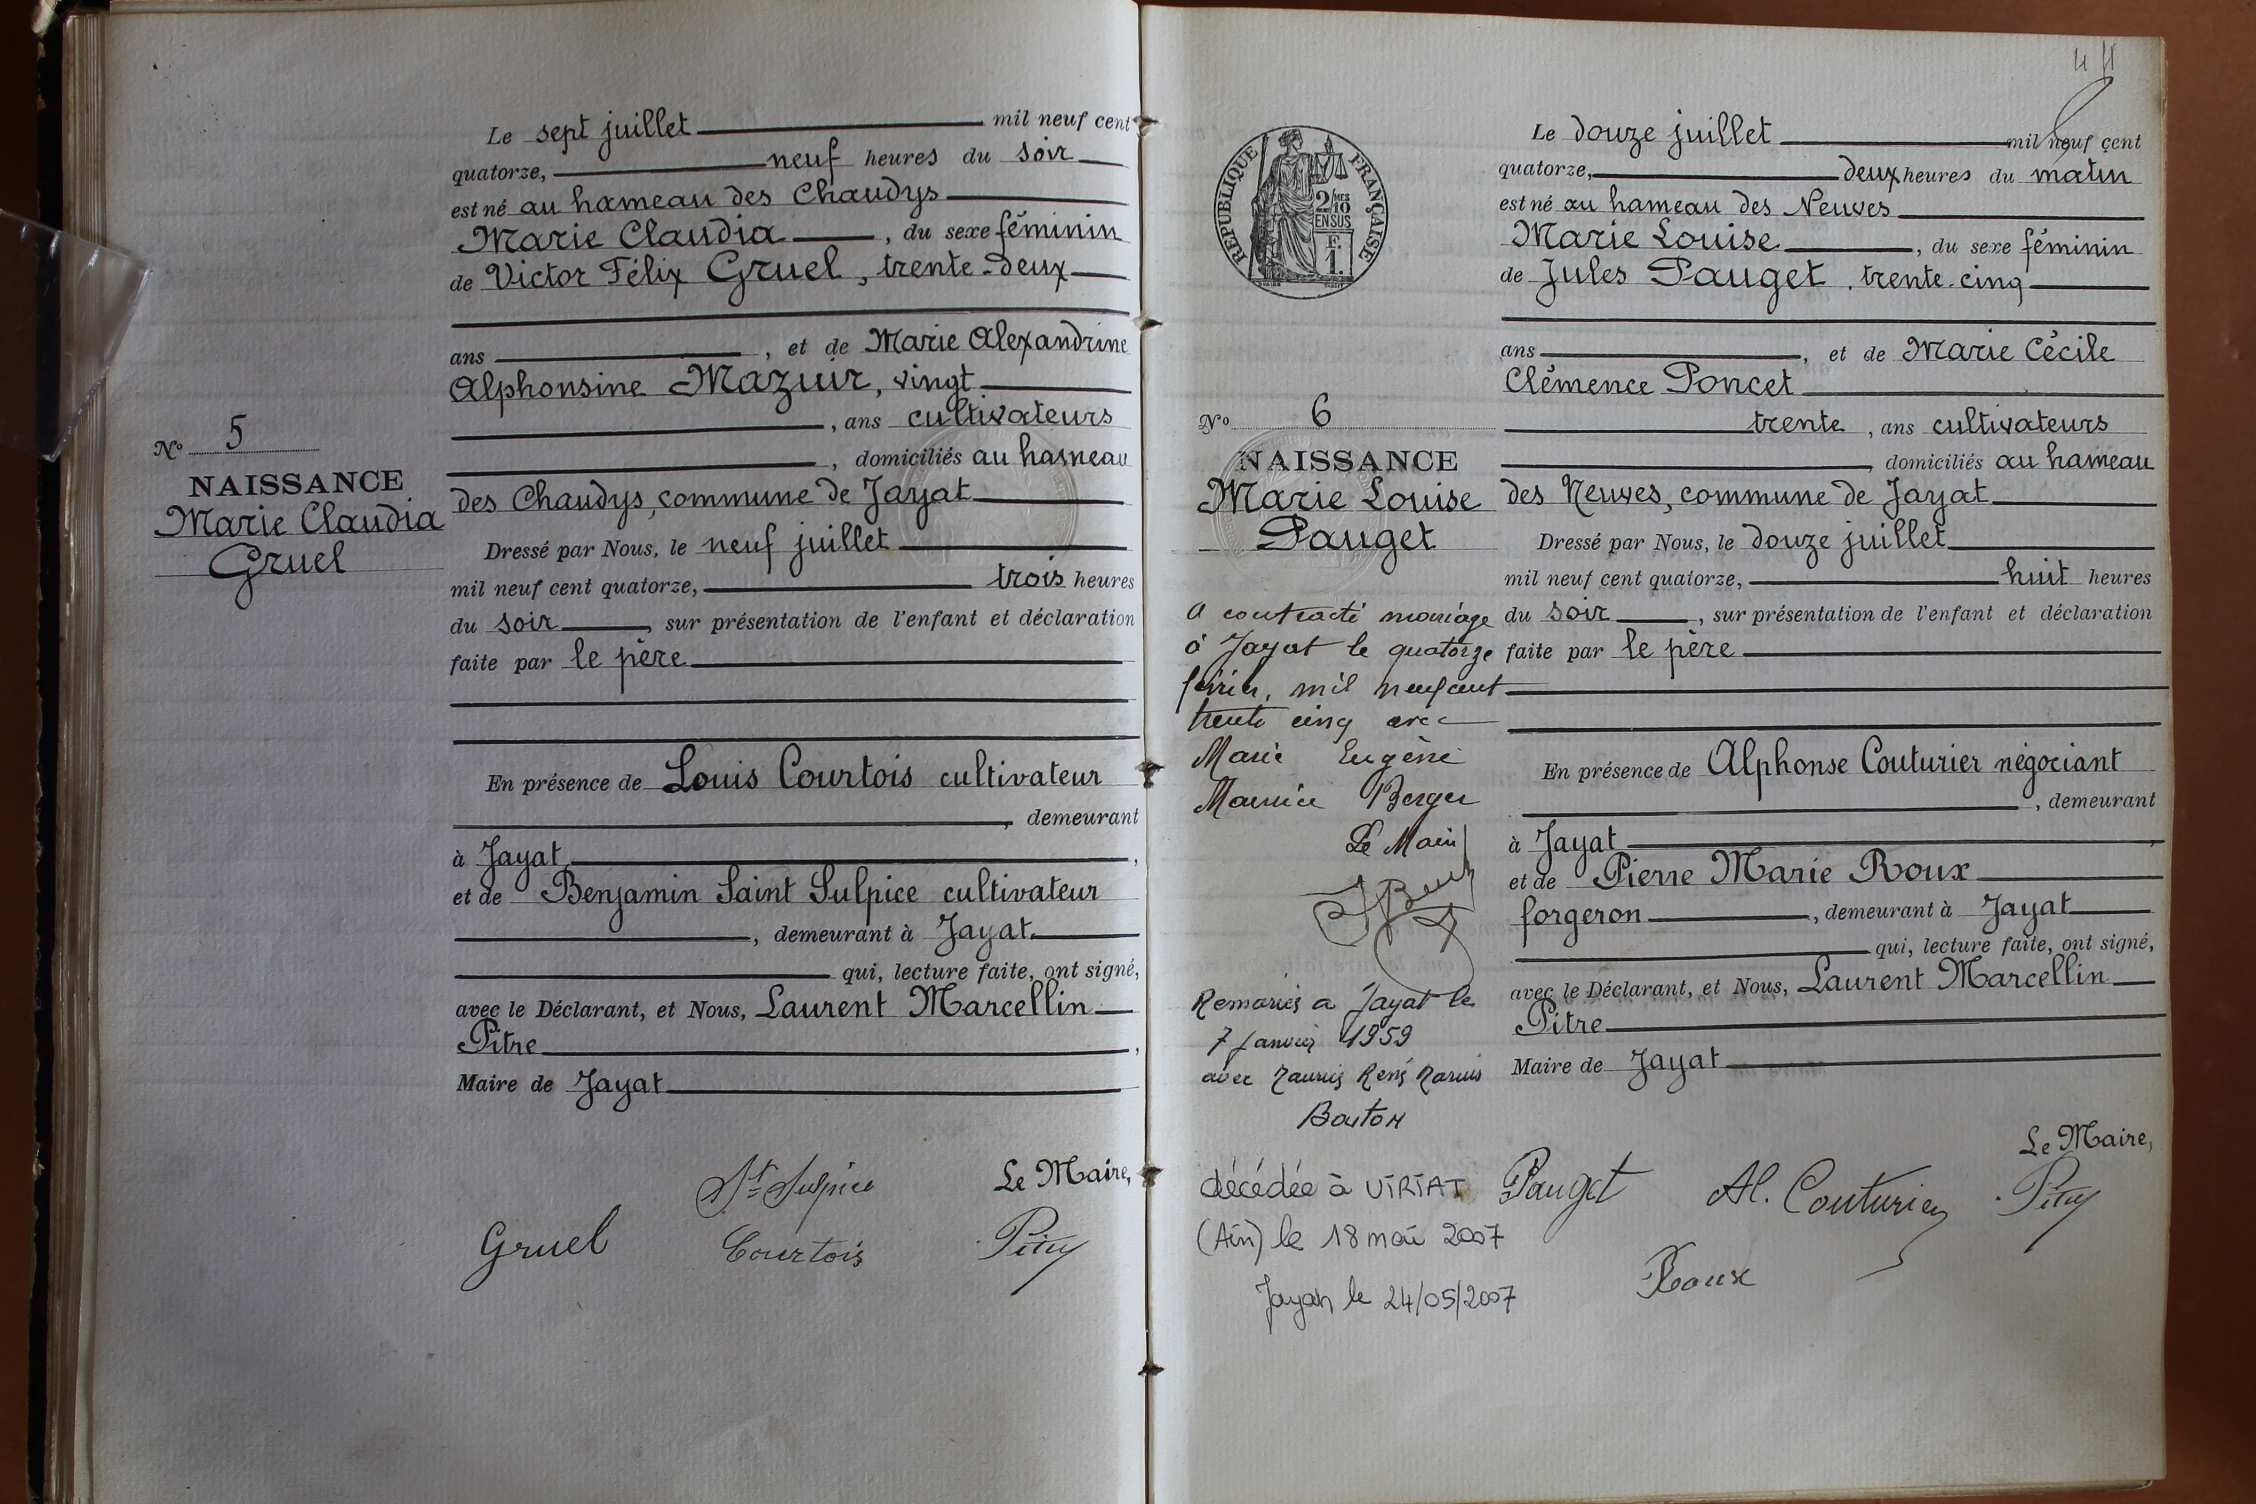 Le sept juillet mil neuf cent
quatorze, neuf heures du soir
est né au hameau des Chaudys
Marie Claudia, du sexe féminin
de Victor Félix Gruel, trente-deux
ans, et de Marie Alexandrine
Alphonsine Mazuir, vingt
, ans cultivateurs
, domiciliés au hameau
des Chaudys, commune de Jayat
Dressé par Nous, le neuf juillet
mil neuf cent quatorze, trois heures
du soir, sur présentation de l'enfant et déclaration
faite par le père
En présence de Louis Courtois cultivateur
, demeurant
à Jayat,
et de Benjamin Saint Sulpice cultivateur
, demeurant à Jayat
qui, lecture faite, ont signé,
avec le Déclarant, et Nous, Laurent Marcellin
Pitre,
Maire de Jayat
Le Maire,
St Sulpice
Gruel Courtois
No 5
NAISSANCE
Marie Claudia
Gruel
RÉPUBLIQUE FRANÇAISE
2/10 MES
EN SUS
F.
1.
Le douze juillet mil neuf cent
quatorze, deux heures du matin
est né au hameau des Neuves
Marie Louise, du sexe féminin
de Jules Pauget, trente-cinq
ans, et de Marie Cécile
Clémence Poncet
trente, ans cultivateurs
, domiciliés au hameau
des Neuves, commune de Jayat
Dressé par Nous, le douze juillet
mil neuf cent quatorze, huit heures
du soir, sur présentation de l'enfant et déclaration
faite par le père
En présence de Alphonse Couturier négociant
, demeurant
à Jayat,
et de Pierre Marie Roux
forgeron, demeurant à Jayat
qui, lecture faite, ont signé,
avec le Déclarant, et Nous, Laurent Marcellin
Pitre
Maire de Jayat
Le Maire,
Pauget Al. Couturier
Roux
No 6
NAISSANCE
Marie Louise
Pauget
A contracté mariage
à Jayat le quatorze
février, mil neuf cent
trente cinq avec
Marie Eugène
Maurice Berger
Le Maire
Remariée a Jayat le
7 janvier 1959
avec Maurice René Marius
Bouton
décédée à VIRIAT
(Ain) le 18 mai 2007
Jayat le 24/05/2007